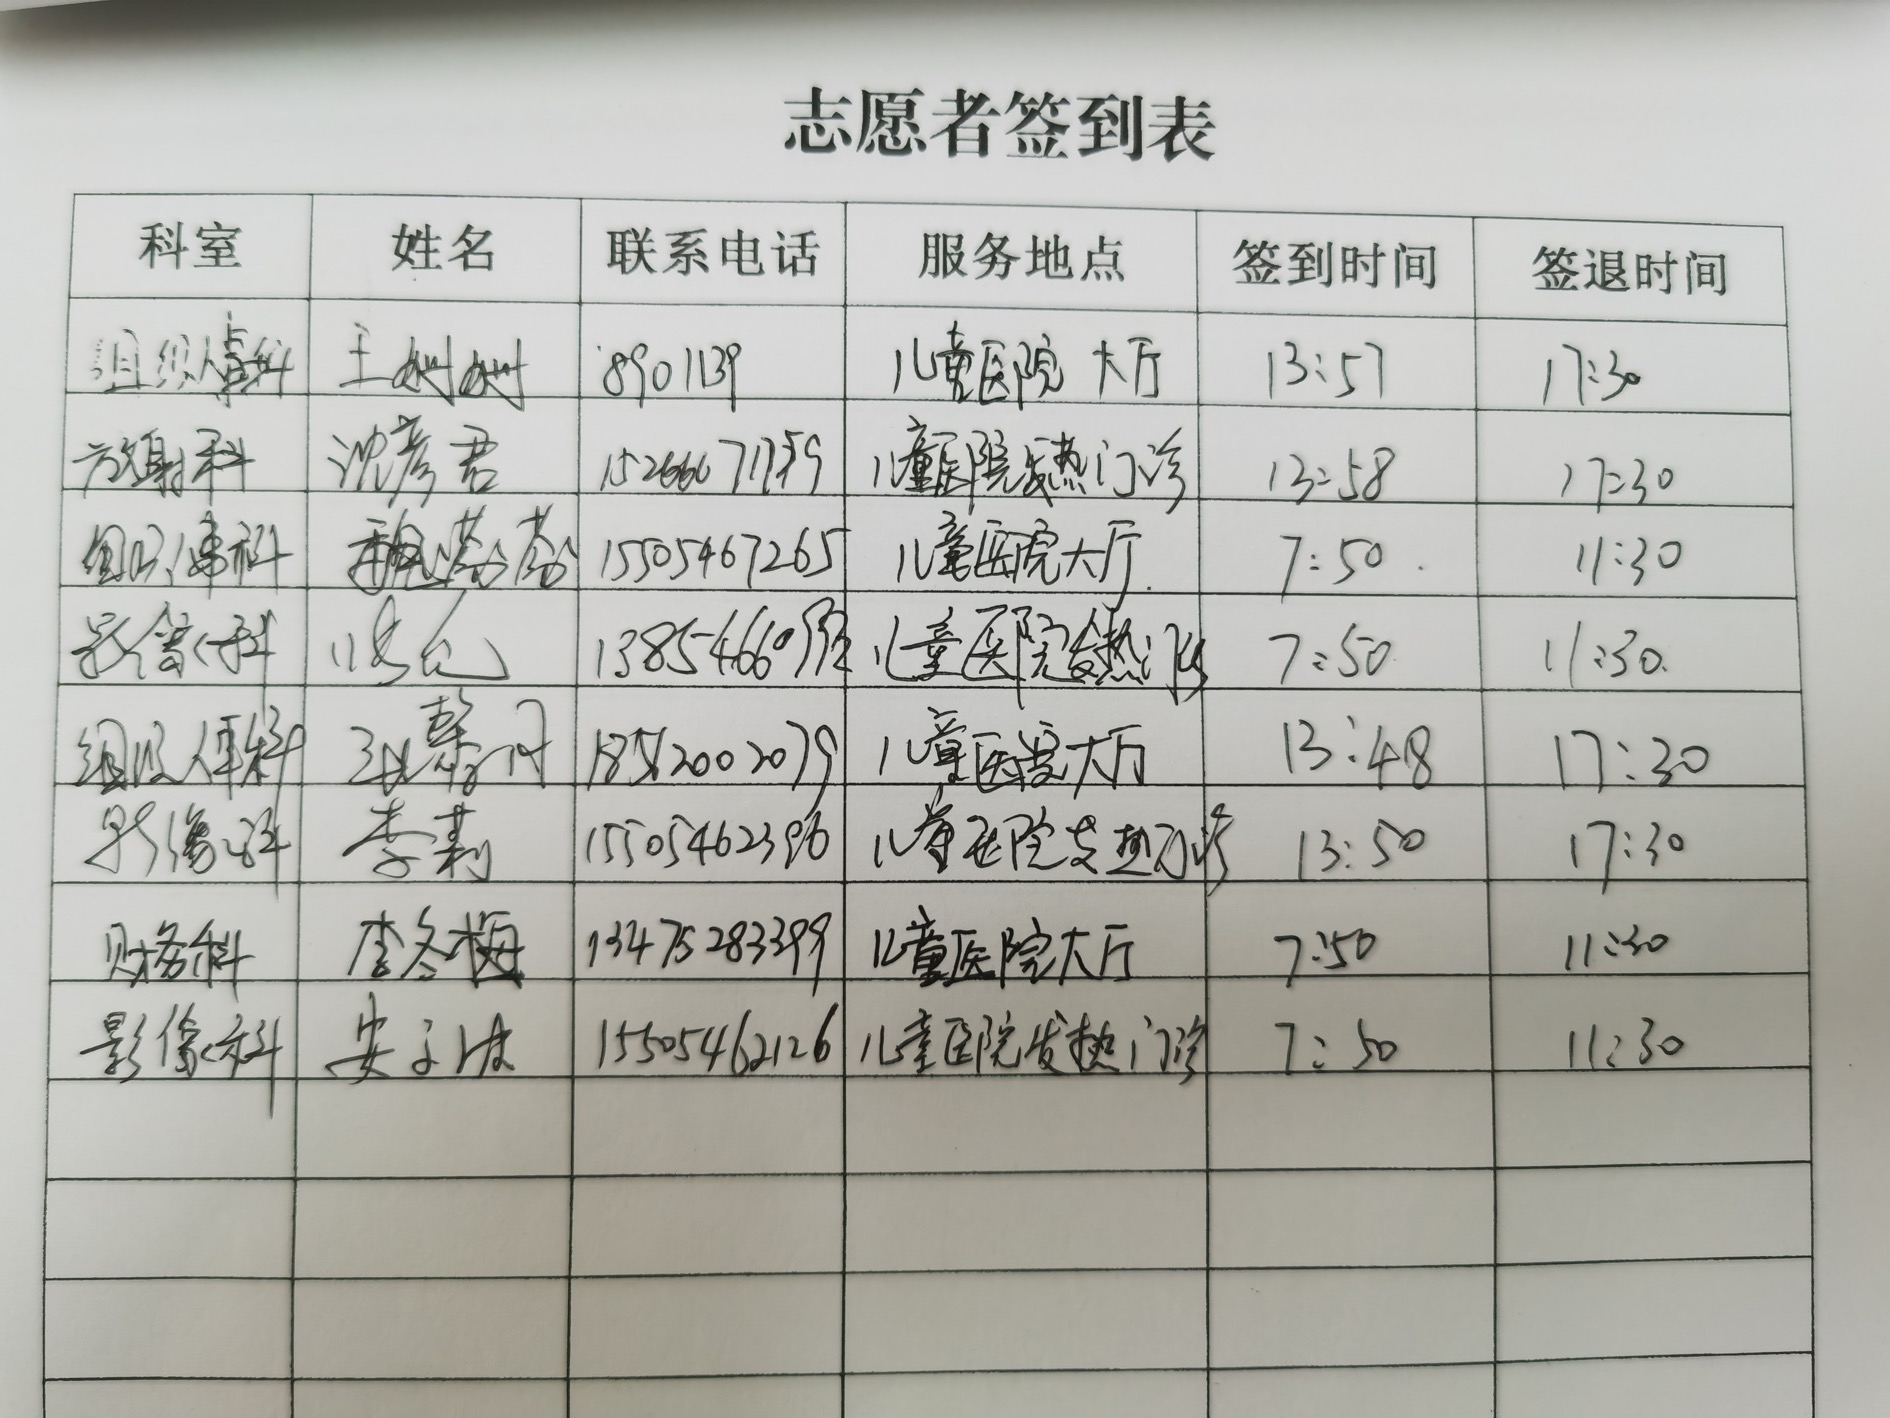 志愿者签到表
科室 姓名 联系电话 服务地点 签到时间 签退时间
组织人事科 王姗姗 8901139 儿童医院 大厅 13:57 17:30
放射科 沈彦君 儿童医院发热门诊 13:58 17:30
科 魏荔荔 15505467265 儿童医院大厅 7:50 11:30
影像科 儿童医院发热门诊 7:50 11:30
组织人事科 儿童医院大厅 13:48 17:30
影像科 李莉 15505462396 儿童医院发热门诊 13:50 17:30
财务科 李冬梅 13475283399 儿童医院大厅 7:50 11:30
影像科 安 波 15505462126 儿童医院发热门诊 7:50 11:30